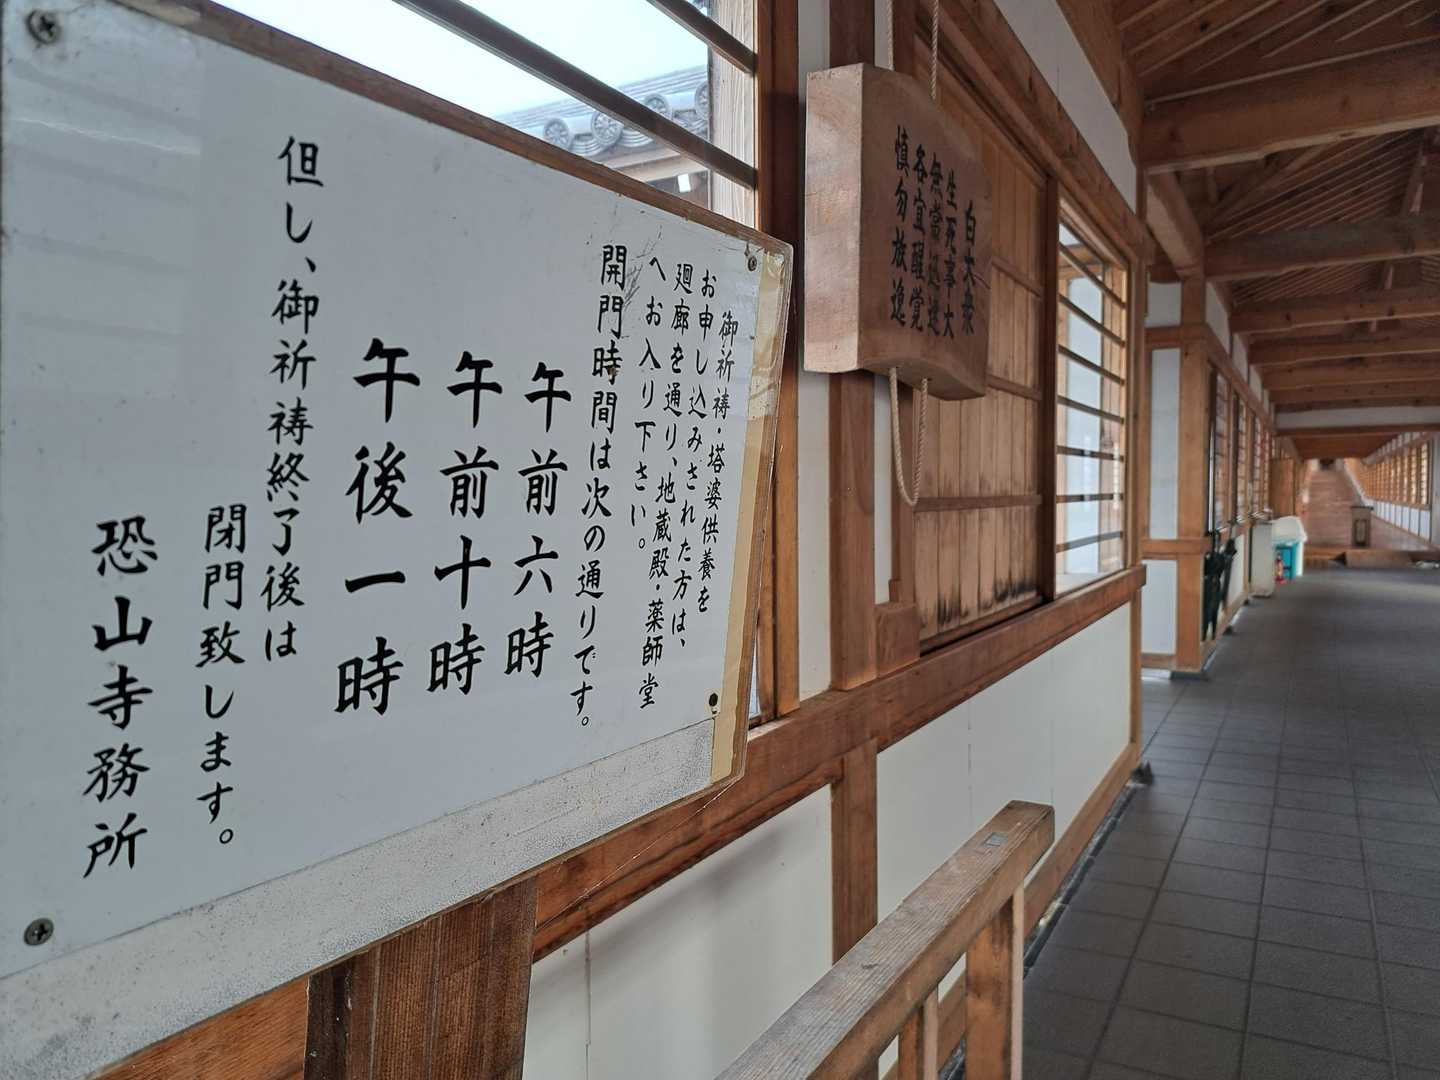 御祈祷・塔婆供養を
お申し込みされた方は、
廻廊を通り、地蔵殿・薬師堂
へお入り下さい。
開門時間は次の通りです。
午前六時
午前十時
午後一時
但し、御祈祷終了後は
閉門致します。
恐山寺務所
白大衆
生死事大
無常迅速
各宜醒覚
慎勿放逸